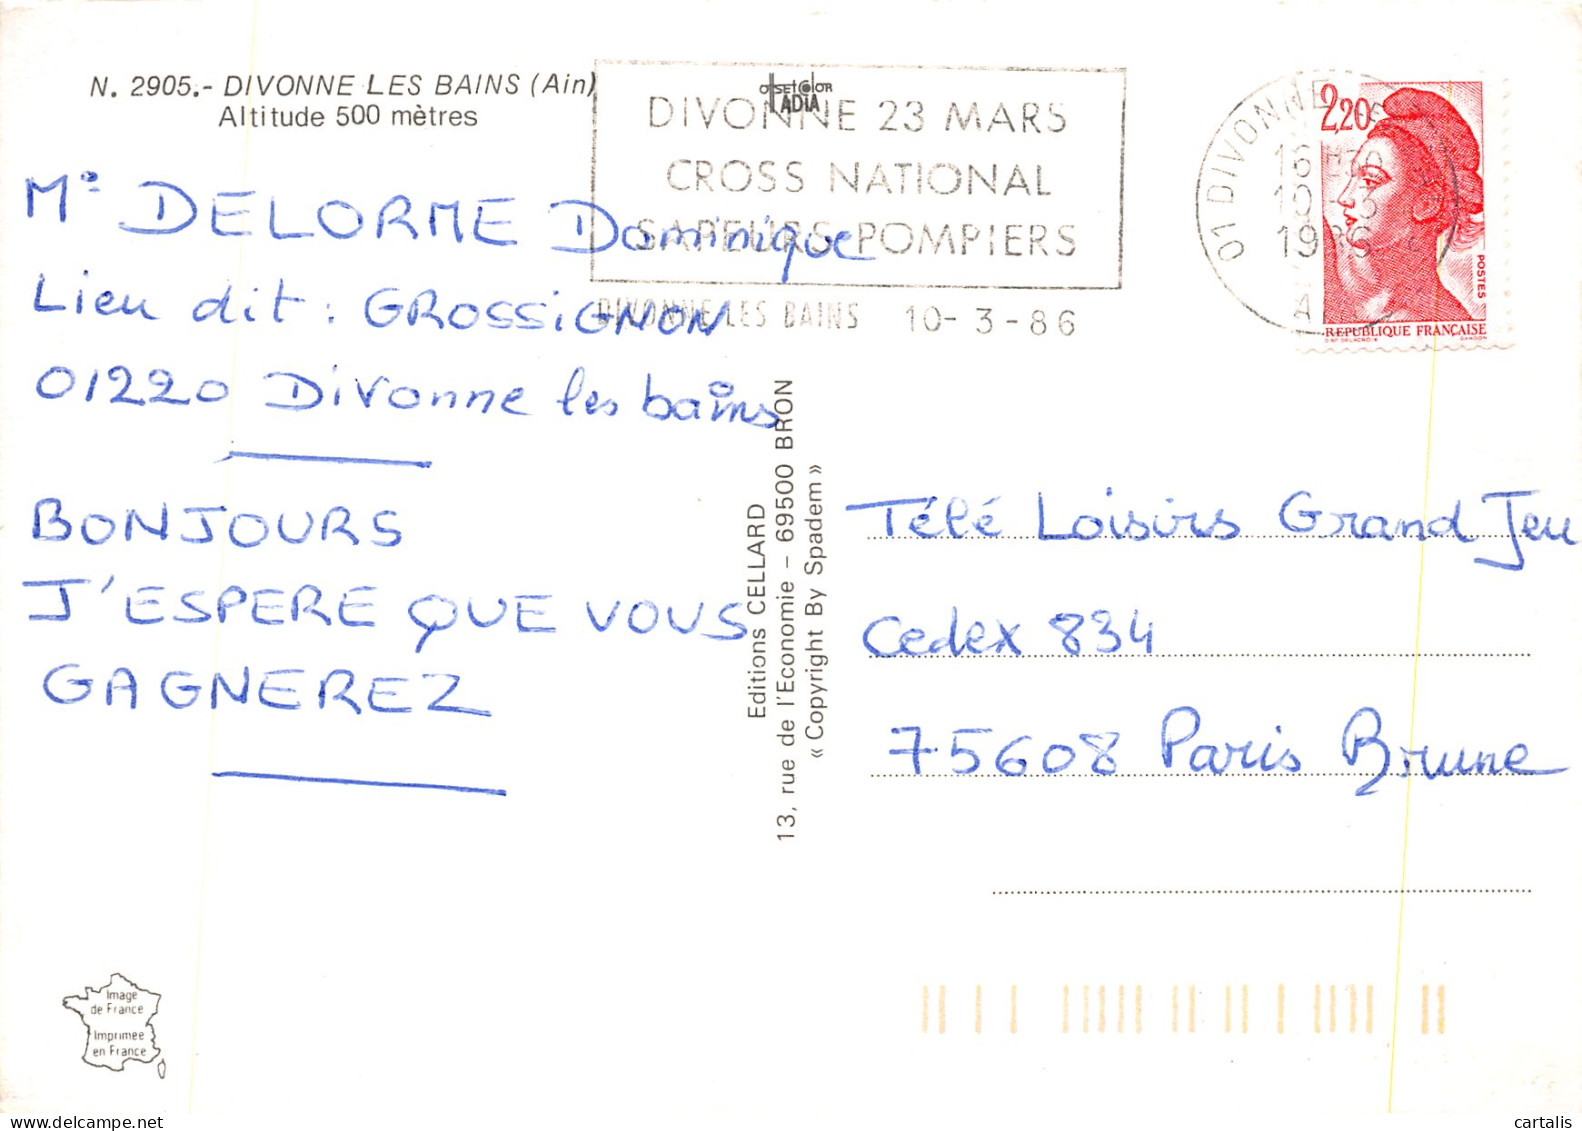 N. 2905.- DIVONNE LES BAINS (Ain)
Altitude 500 mètres
OffSETCOlOR
TADIA
DIVONNE 23 MARS
CROSS NATIONAL
SAPEURS-POMPIERS
DIVONNE-LES BAINS 10-3-86
01 DIVONNE
16
1986
A
2,20
POSTES
REPUBLIQUE FRANÇAISE
Mº DELORME Dominique
Lieu dit : GROSSiGNON
01220 Divonne les bains
BONJOURS
J'ESPERE QUE VOUS
GAGNEREZ
Editions CELLARD
13, rue de l'Economie – 69500 BRON
« Copyright By Spadem »
Télé Loisirs Grand Jeu
Cedex 834
75608 Paris Brune
Image
de France
Imprimée
en France
cartalis